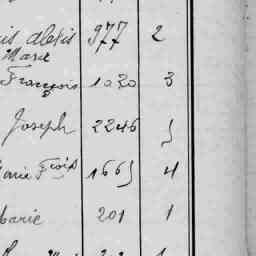 is Alexis 977 2
Marie
François 1030 3
Joseph 2246 5
Marie Frois 1665 4
Marie 201 1